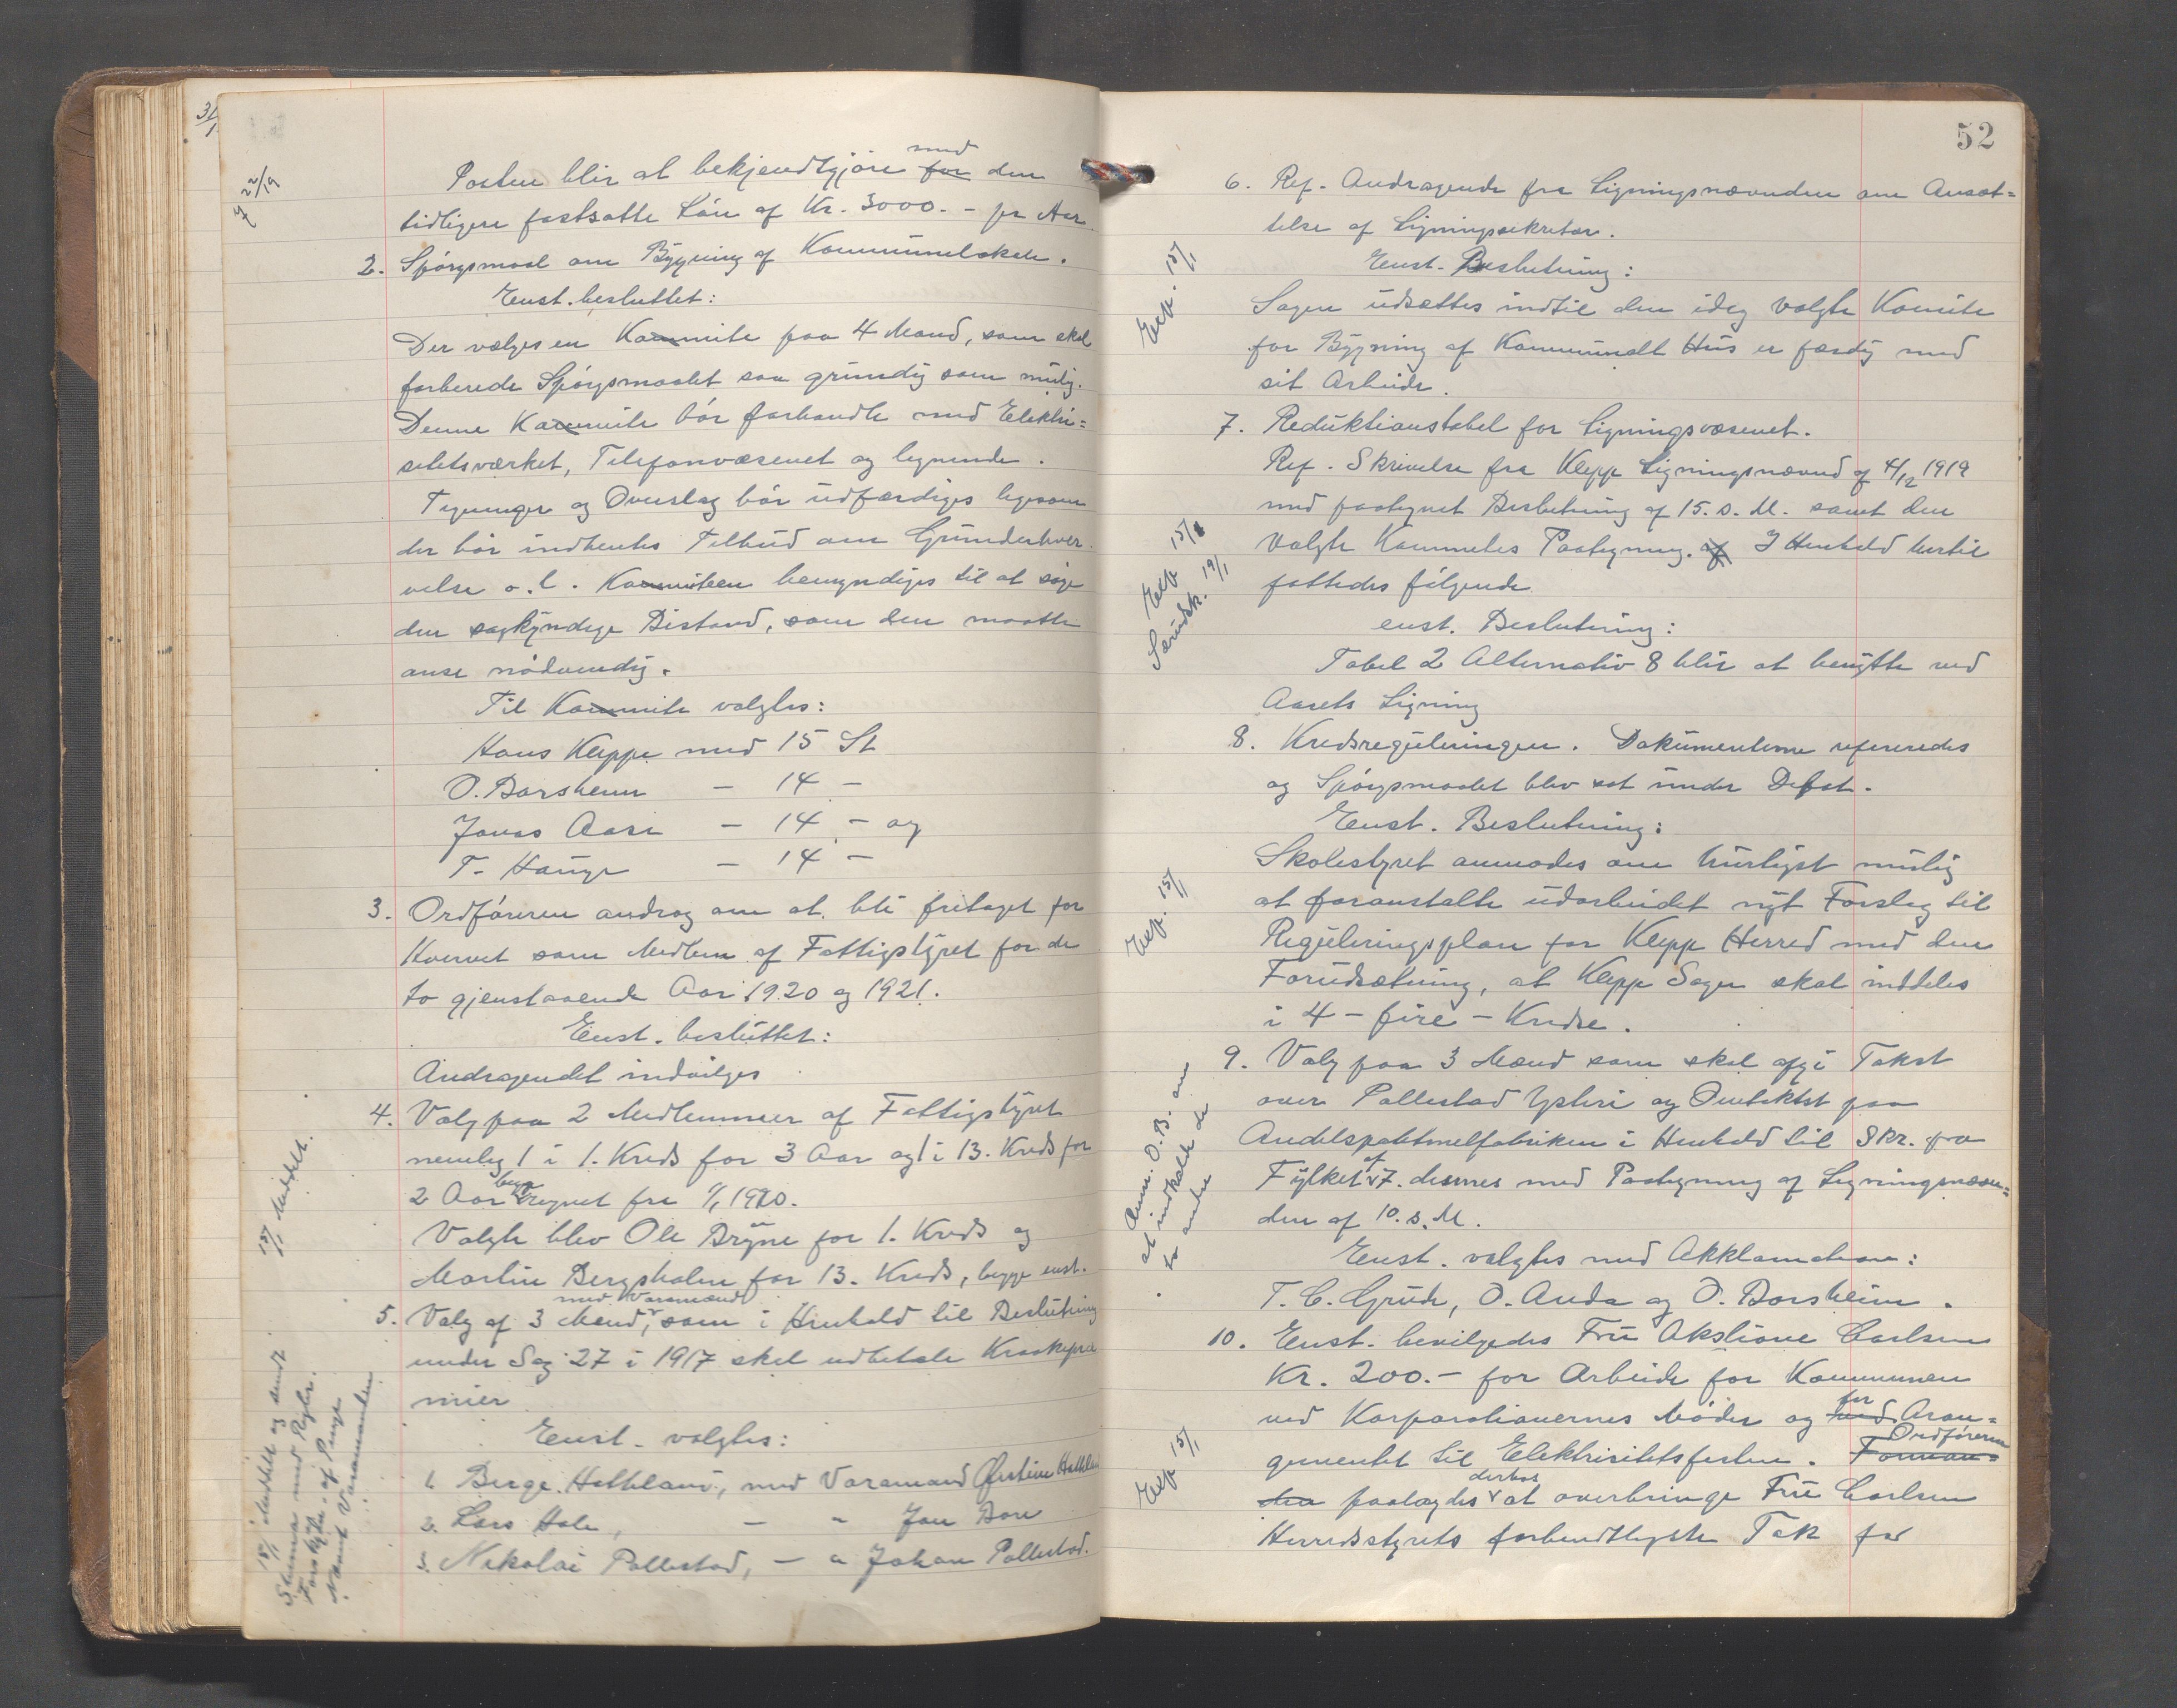 Posten blir at bekjendtgjøre med for den
tidligere fastsatte Løn af Kr. 3000.- pr Aar.
2. Spørgsmaal om Bygning af Kommunelokale.
Enst. besluttet:
Der vælges en Kommite paa 4 Mand, som skal
forberede Spørgsmaalet saa grundig som mulig.
Denne Kommite bør forhandle med Elektri=
sitetsværket, Telefonvæsenet og lignende.
Tegninger og Overslag bør udfærdiges ligesom
der bør indhentes Tilbud om Grunderhver-
velse o.l. Kommiteen bemyndiges til at søge
den sagkyndige Bistand, som den maatte
anse nødvendig.
Til Kommite valgtes:
Hans Kleppe med 15 St
O. Borsheim – 14 –
Jonas Aase – 14 – og
T. Hauge – 14 –
3. Ordføreren androg om at bli fritaget for
Hvervet som Medlem af Fattigstyret for de
to gjenstaaende Aar 1920 og 1921.
Enst. besluttet:
Andragendet indvilges
4. Valg paa 2 Medlemmer af Fattigstyret
nemlig 1 i 1. Kreds for 3 Aar og 1 i 13. Kreds for
2 Aar begge regnet fra 1/1 1920.
Valgte blev Ole Bryne for 1. Kreds og
Martin Bergsholm for 13. Kreds, begge enst.
5. Valg af 3 Mænd, med Varamænd som i Henhold til Beslutning
under Sag 27 i 1917 skal udbetale Kraakepræ
mier
Enst. valgtes:
1. Berge Hatteland, med Varamand
2. Lars Hole, – " Jon Bore
3. Nikolai Pollestad, – " Johan Pollestad.
22/19
15/1 Meddelt.
15/1 Meddelt og sendt
52
6. Ref. Andragende fra Ligningsnævnden om Ansæt=
telse af Ligningssekretær.
Enst. Beslutning:
Sagen udsættes indtil den idag valgte Komite
for Bygning af Kommunalt Hus er færdig med
sit Arbeide.
7. Reduktionstabel for Ligningsvæsenet.
Ref. Skrivelse fra Klepp Ligningsnævnd af 4/12 1919
med paategnet Beslutning af 15. s. M. samt den
valgte Kommites Paategning. af I Henhold hertil
fattedes følgende
enst. Beslutning:
Tabel 2 Alternativ 8 blir at benytte ved
Aarets Ligning
8. Kredsreguleringen. Dokumenterne refereredes
og Spørgsmaalet blev sat under Debat.
Enst. Beslutning:
Skolestyret anmodes om hurtigst mulig
at foranstalte udarbeidet nyt Forslag til
Reguleringsplan for Klepp Herred med den
Forudsætning, at Klepp Sogn skal inddeles
i 4 – fire – Kredse.
9. Valg paa 3 Mænd som skal afgi Takst
over Pollestad Ysteri og Omtakst paa
Andelspotetmelfabriken i Henhold til Skr. fra
Fylket af 7. dennes med Paategning af Ligningsnævn=
den af 10. s. M.
Enst. valgtes med Akklamation:
T. C. Grude, O. Anda og O. Borsheim.
10. Enst. bevilgedes Fru Akstine Carlsen
Kr. 200.- for Arbeide for Kommunen
ved Korporationernes Møder og for ved Aran=
gementet til Elektrisitetsfesten. Ordføreren Forman=
den paalagdes derhos at overbringe Fru Carlsen
Herredsstyrets forbindtligste Tak for
Exp. 15/1
Exp 15/1
Særudsk. 19/1
Exp. 15/1
Anm. O. B. om
at indkalde de
to andre
Exp 15/1